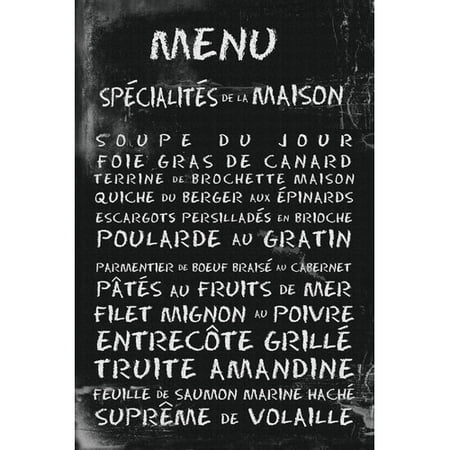 MENU
SPÉCIALITÉS DE LA MAISON
SOUPE DU JOUR
FOIE GRAS DE CANARD
TERRINE DE BROCHETTE MAISON
QUICHE DU BERGER AUX ÉPINARDS
ESCARGOTS PERSILLADÉS EN BRIOCHE
POULARDE AU GRATIN
PARMENTIER DE BOEUF BRAISÉ AU CABERNET
PÂTÉS AU FRUITS DE MER
FILET MIGNON AU POIVRE
ENTRECÔTE GRILLÉ
TRUITE AMANDINE
FEUILLE DE SAUMON MARINE HACHÉ
SUPRÊME DE VOLAILLE